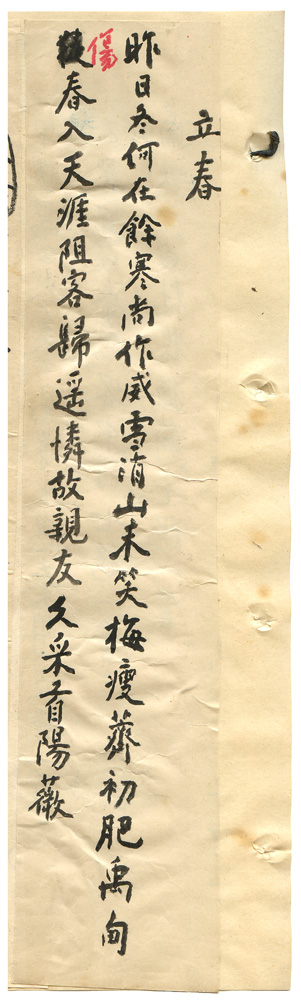 立春
昨日冬何在餘寒尚作威雪消山未笑梅瘦薺初肥禹甸
傷春入天涯阻客歸遥憐故親友久采首陽薇